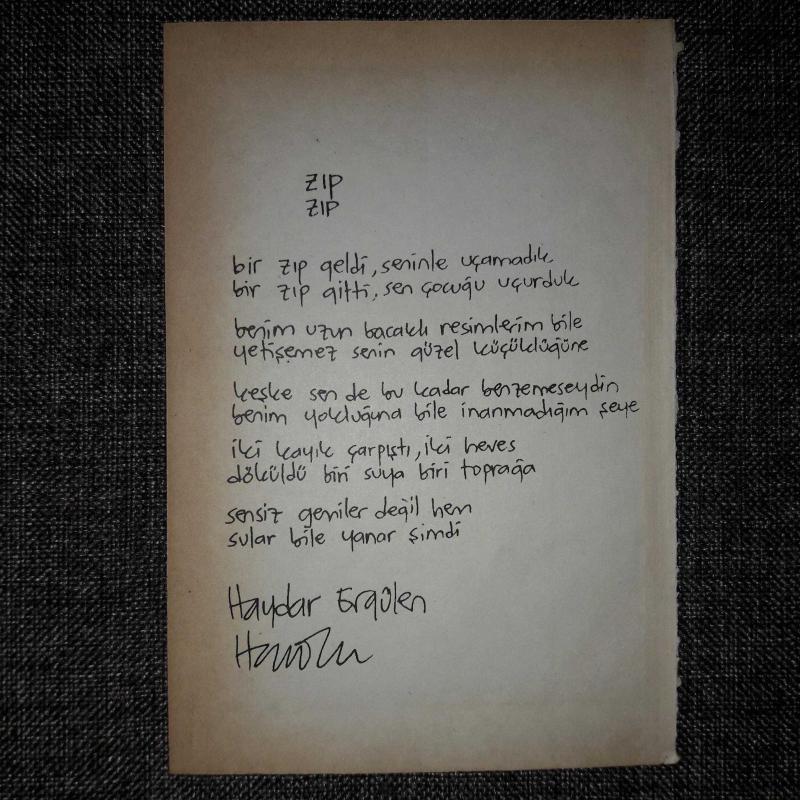 ZIP
ZIP
bir zıp geldi, seninle uçamadık
bir zıp gitti, sen çocuğu uçurduk
benim uzun bacaklı resimlerim bile
yetişemez senin güzel küçüklüğüne
keşke sen de bu kadar benzemeseydin
benim yokluğuna bile inanmadığım şeye
iki kayık çarpıştı, iki heves
döküldü biri suya biri toprağa
sensiz gemiler değil hem
sular bile yanar şimdi
Haydar Ergülen